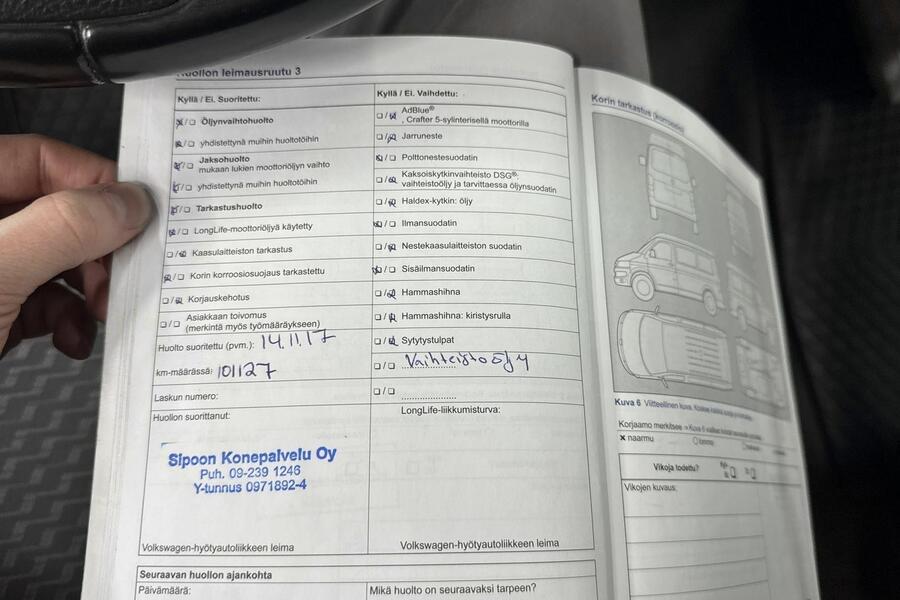 Huollon leimausruutu 3
Kyllä / Ei. Suoritettu:
☒/☐ Öljynvaihtohuolto
☒/☐ yhdistettynä muihin huoltotöihin
☒/☐ Jaksohuolto
mukaan lukien moottoriöljyn vaihto
☒/☐ yhdistettynä muihin huoltotöihin
☒/☐ Tarkastushuolto
☒/☐ LongLife-moottoriöljyä käytetty
☐/☒ Kaasulaitteiston tarkastus
☒/☐ Korin korroosiosuojaus tarkastettu
☐/☒ Korjauskehotus
☐/☐ Asiakkaan toivomus
(merkintä myös työmääräykseen)
Huolto suoritettu (pvm.): 14.11.17
km-määrässä: 101127
Laskun numero:
Huollon suorittanut:
Sipoon Konepalvelu Oy
Puh. 09-239 1246
Y-tunnus 0971892-4
Volkswagen-hyötyautoliikkeen leima
Kyllä / Ei. Vaihdettu:
☐/☒ AdBlue®
, Crafter 5-sylinterisellä moottorilla
☐/☒ Jarruneste
☒/☐ Polttonestesuodatin
☐/☒ Kaksoiskytkinvaihteisto DSG®:
vaihteistoöljy ja tarvittaessa öljynsuodatin
☐/☒ Haldex-kytkin: öljy
☒/☐ Ilmansuodatin
☐/☒ Nestekaasulaitteiston suodatin
☒/☐ Sisäilmansuodatin
☐/☒ Hammashihna
☐/☒ Hammashihna: kiristysrulla
☐/☒ Sytytystulpat
☐/☐ Vaihteistoöljy
☐/☐ ....................
LongLife-liikkumisturva:
Volkswagen-hyötyautoliikkeen leima
Seuraavan huollon ajankohta
Päivämäärä:
Mikä huolto on seuraavaksi tarpeen?
Korin tarkastus (korroosio)
Kuva 6 Viitteellinen kuva.
Korjaamo merkitsee
× naarmu
Vikoja todettu?
Vikojen kuvaus: